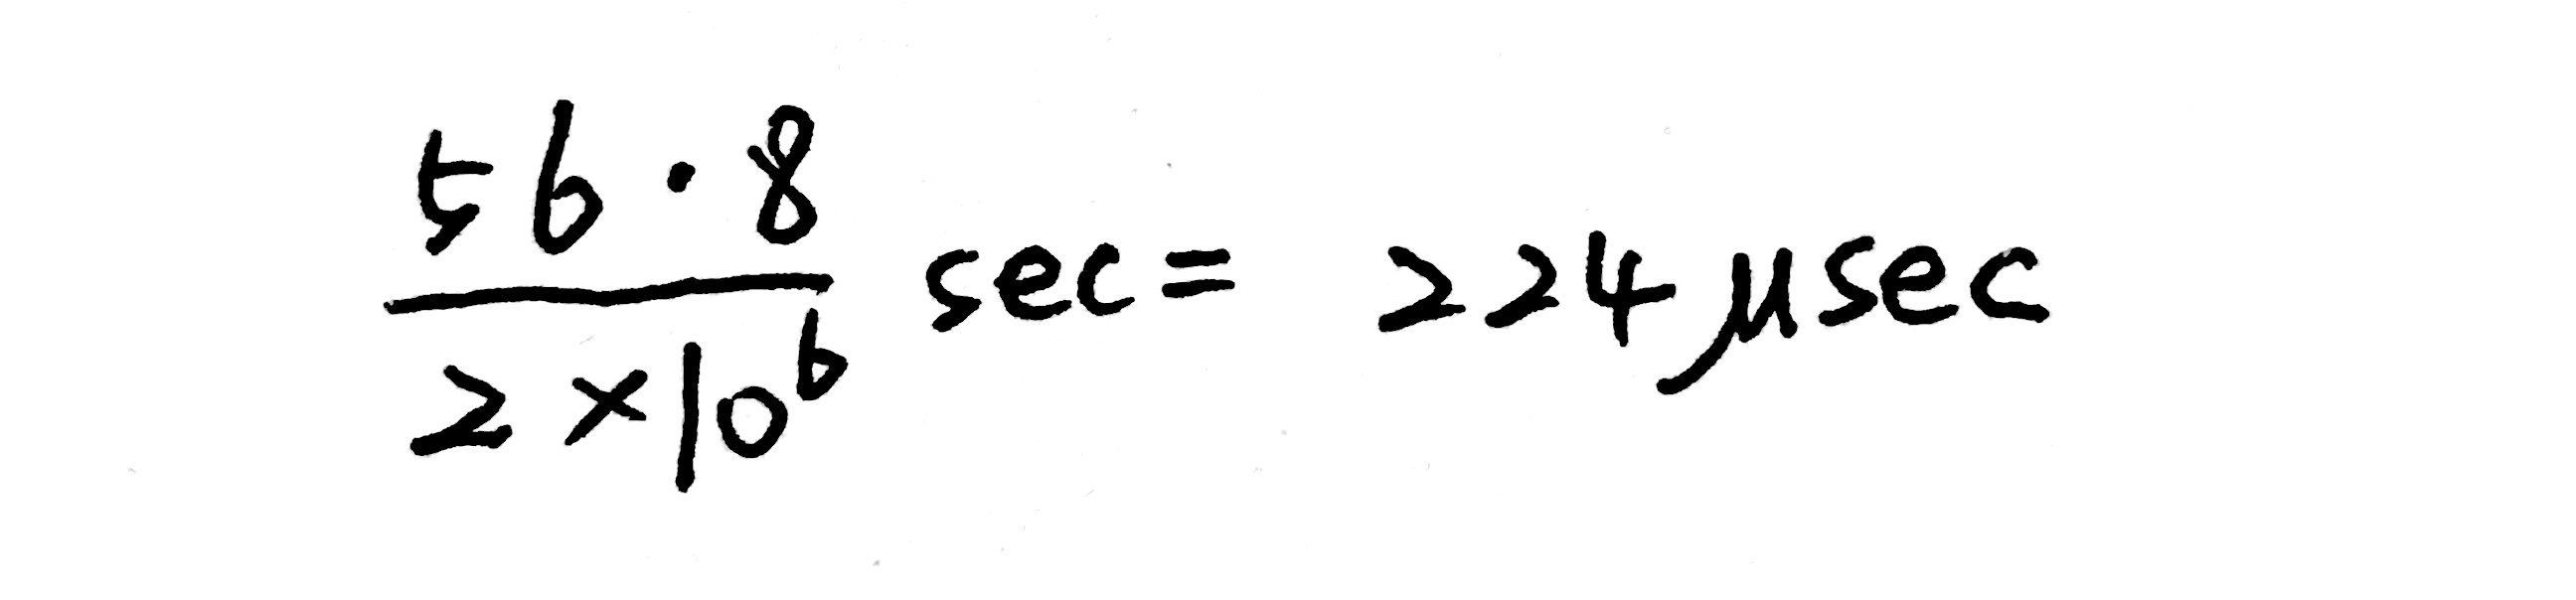 \frac{56 \cdot 8}{2 \times 10^6} sec = 224 μsec